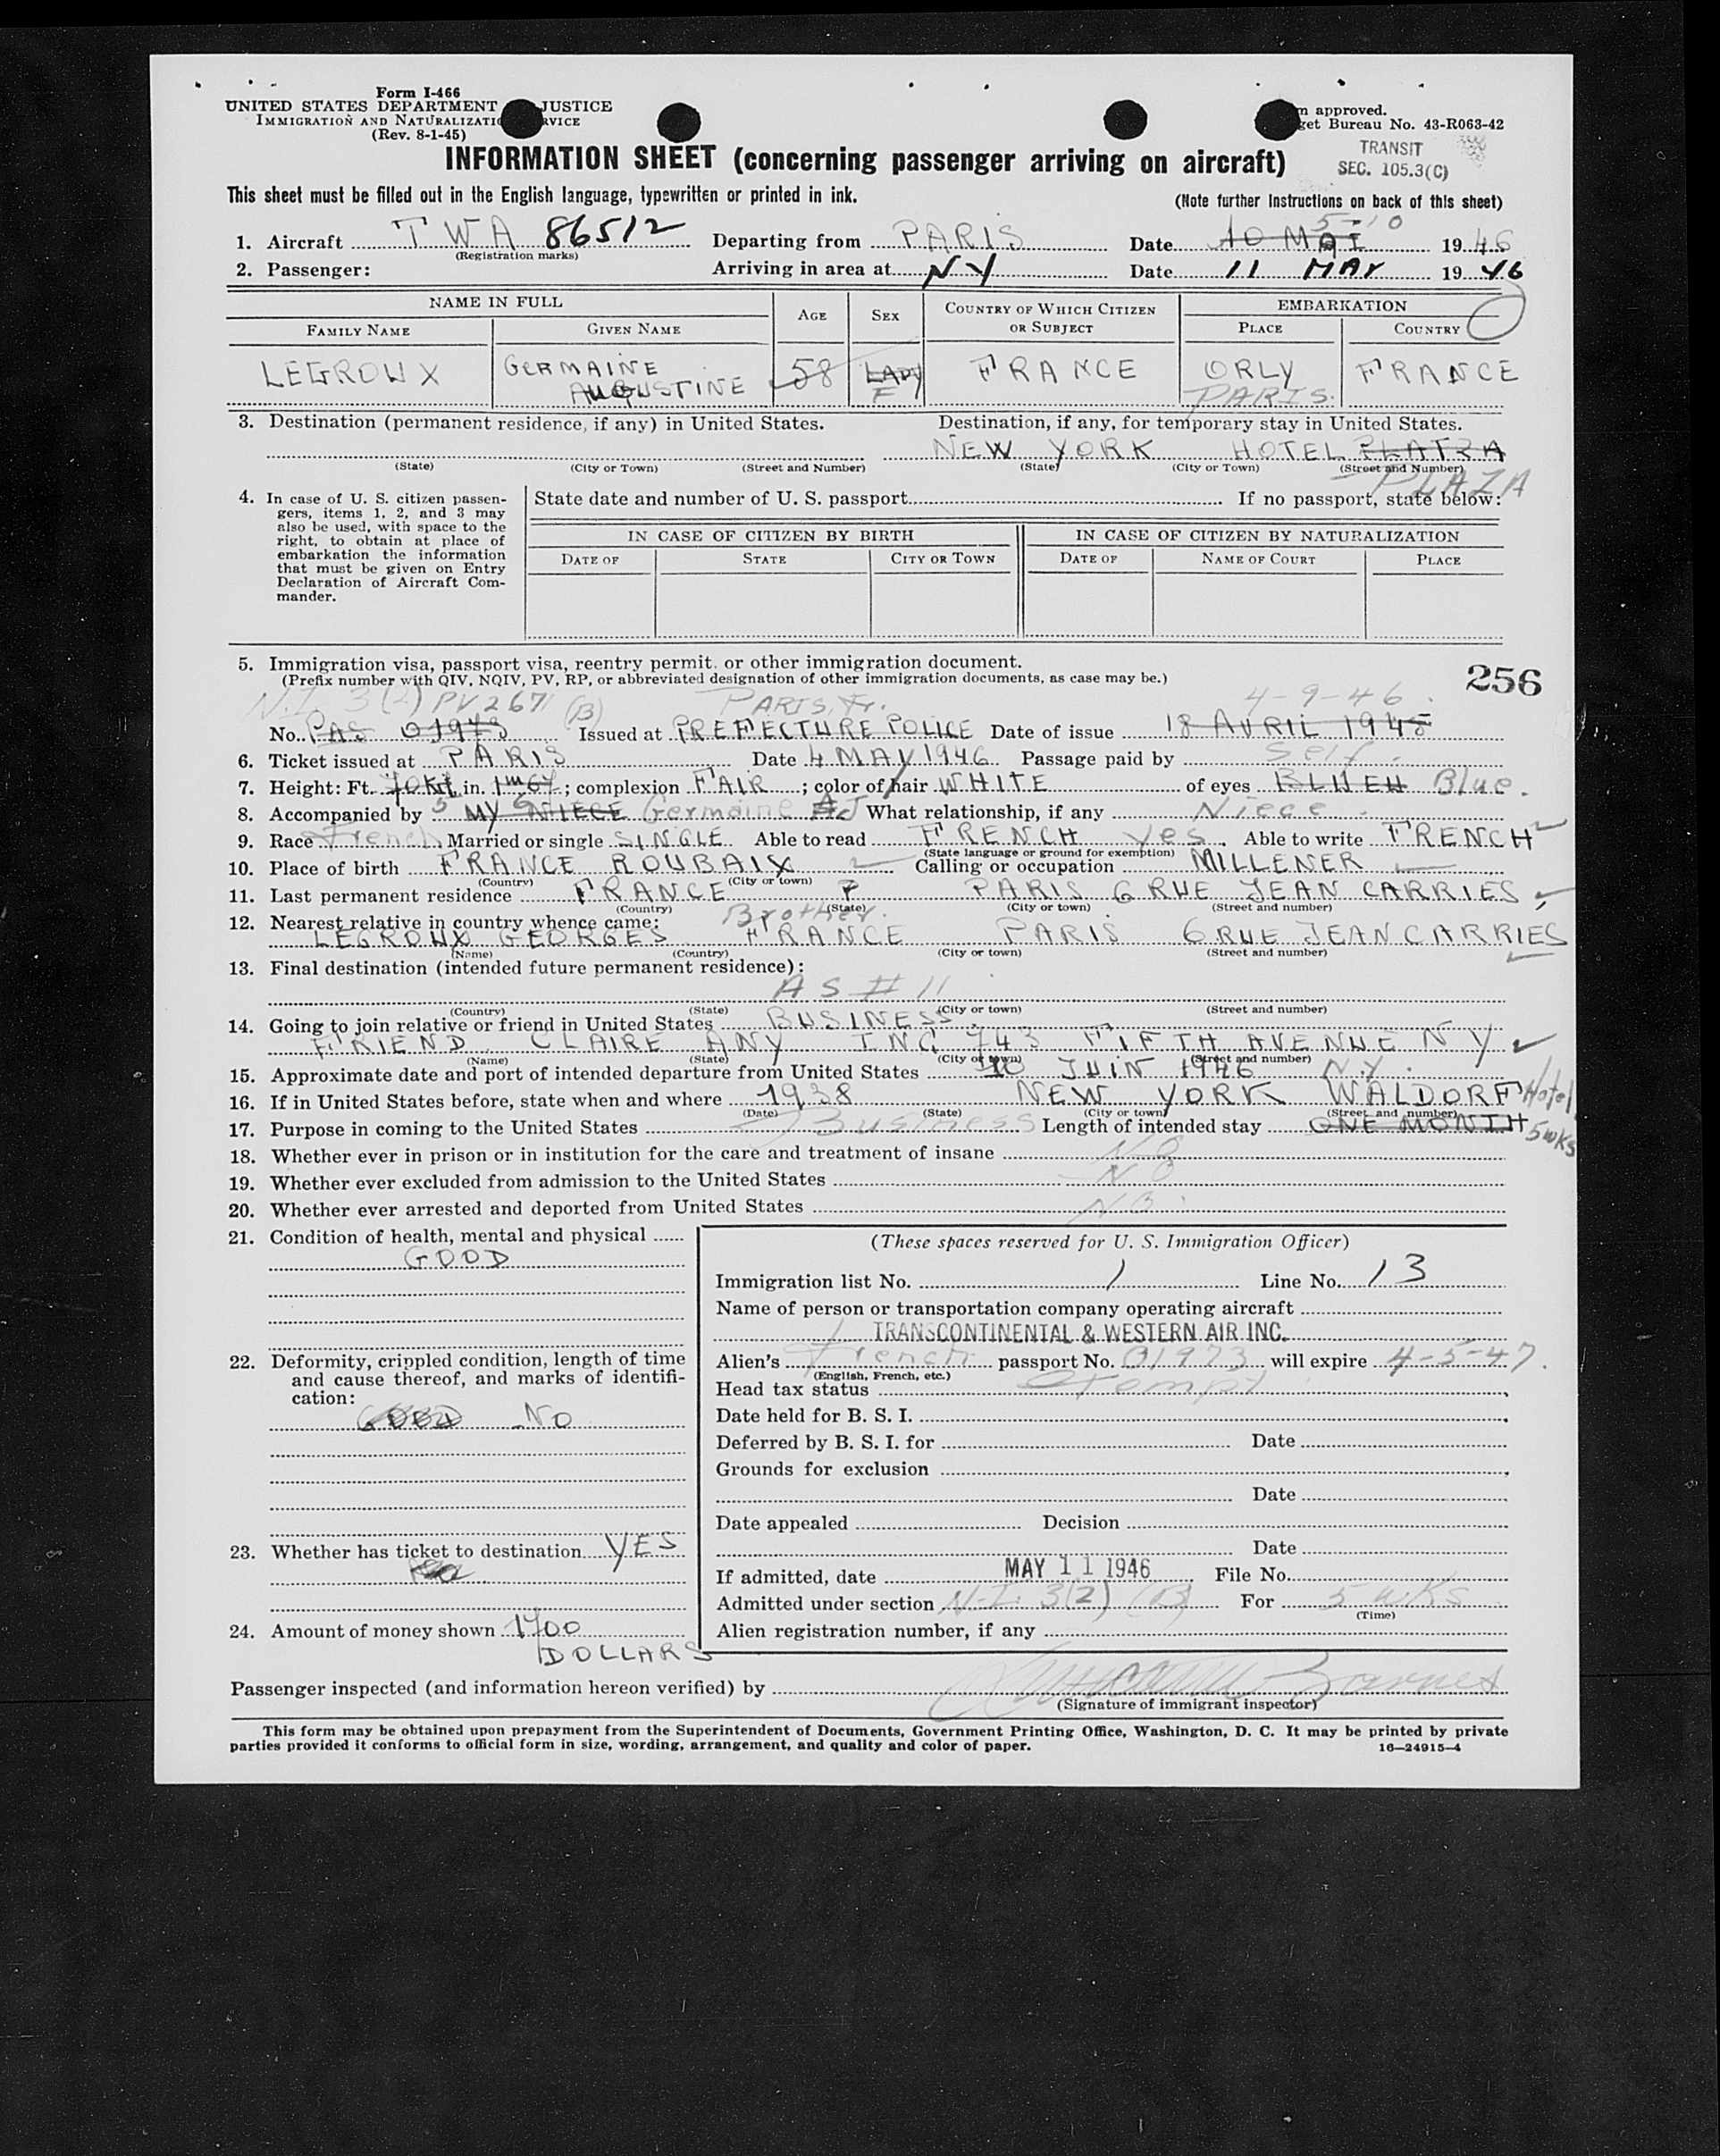 Form I-466
UNITED STATES DEPARTMENT JUSTICE
IMMIGRATION AND NATURALIZATIO RVICE
(Rev. 8-1-45)
n approved.
get Bureau No. 43-R063-42
TRANSIT
SEC. 105.3(C)
INFORMATION SHEET (concerning passenger arriving on aircraft)
This sheet must be filled out in the English language, typewritten or printed in ink.
(Note further instructions on back of this sheet)
5-10
1. Aircraft TWA 86512 Departing from PARIS Date 10 MAI 1946
(Registration marks)
2. Passenger: Arriving in area at NY Date 11 MAY 1946
NAME IN FULL AGE SEX COUNTRY OF WHICH CITIZEN OR SUBJECT EMBARKATION
FAMILY NAME GIVEN NAME PLACE COUNTRY
LEGROUX GERMAINE AUGUSTINE 58 LADY F FRANCE ORLY PARIS FRANCE
3. Destination (permanent residence, if any) in United States. Destination, if any, for temporary stay in United States.
NEW YORK HOTEL PLATZA
(State) (City or Town) (Street and Number) (State) (City or Town) (Street and Number)
PLAZA
4. In case of U. S. citizen passen-
gers, items 1, 2, and 3 may
also be used, with space to the
right, to obtain at place of
embarkation the information
that must be given on Entry
Declaration of Aircraft Com-
mander.
State date and number of U. S. passport If no passport, state below:
IN CASE OF CITIZEN BY BIRTH IN CASE OF CITIZEN BY NATURALIZATION
DATE OF STATE CITY OR TOWN DATE OF NAME OF COURT PLACE
5. Immigration visa, passport visa, reentry permit, or other immigration document.
(Prefix number with QIV, NQIV, PV, RP, or abbreviated designation of other immigration documents, as case may be.)
256
N.I 3(2) PV2671 (B) PARIS, Fr. 4-9-46.
No. PAS 01973 Issued at PREFECTURE POLICE Date of issue 18 AVRIL 1948
6. Ticket issued at PARIS Date 4 MAY 1946 Passage paid by Self.
7. Height: Ft. 70K in. 1m67; complexion FAIR; color of hair WHITE of eyes BLUEH Blue.
5 6
8. Accompanied by MY NIECE Germaine What relationship, if any Niece.
9. Race French Married or single SINGLE Able to read FRENCH yes. Able to write FRENCH
(State language or ground for exemption)
10. Place of birth FRANCE ROUBAIX Calling or occupation MILLENER
(Country) (City or town)
11. Last permanent residence FRANCE PARIS 6 RUE JEAN CARRIES
(Country) (State) (City or town) (Street and number)
12. Nearest relative in country whence came: Brother.
LEGROUX GEORGES FRANCE PARIS 6 RUE JEAN CARRIES
(Name) (Country) (City or town) (Street and number)
13. Final destination (intended future permanent residence):
AS # 11
(Country) (State) (City or town) (Street and number)
14. Going to join relative or friend in United States BUSINESS
FRIEND CLAIRE ANY INC 743 FIFTH AVENUE NY
(Name) (State) (City or town) (Street and number)
15. Approximate date and port of intended departure from United States 10 JUIN 1946 N.Y.
16. If in United States before, state when and where 1938 NEW YORK WALDORF Hotel
(Date) (State) (City or town) (Street and number)
17. Purpose in coming to the United States Business Length of intended stay ONE MONTH 5wks
18. Whether ever in prison or in institution for the care and treatment of insane NO
19. Whether ever excluded from admission to the United States NO
20. Whether ever arrested and deported from United States NO
21. Condition of health, mental and physical
GOOD
22. Deformity, crippled condition, length of time
and cause thereof, and marks of identifi-
cation:
GOOD NO
23. Whether has ticket to destination YES
24. Amount of money shown 1700
DOLLARS
(These spaces reserved for U. S. Immigration Officer)
Immigration list No. 1 Line No. 13
Name of person or transportation company operating aircraft
TRANSCONTINENTAL & WESTERN AIR INC.
Alien's French passport No. 01973 will expire 4-5-47.
(English, French, etc.)
Head tax status Exempt
Date held for B. S. I.
Deferred by B. S. I. for Date
Grounds for exclusion
Date
Date appealed Decision
Date
If admitted, date MAY 11 1946 File No.
Admitted under section N.I. 3(2) (B) For 5 wks
(Time)
Alien registration number, if any
Passenger inspected (and information hereon verified) by Barnes
(Signature of immigrant inspector)
This form may be obtained upon prepayment from the Superintendent of Documents, Government Printing Office, Washington, D. C. It may be printed by private
parties provided it conforms to official form in size, wording, arrangement, and quality and color of paper.
16—24915-4